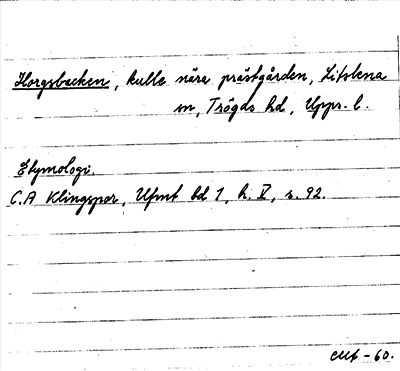 Horgsbacken, kulle nära prästgården, Litslena
sn, Trögds hd, Upps. l.
Etymologi.
C.A Klingspor, Ufmt bd 1, h. V, s. 92.
-60.